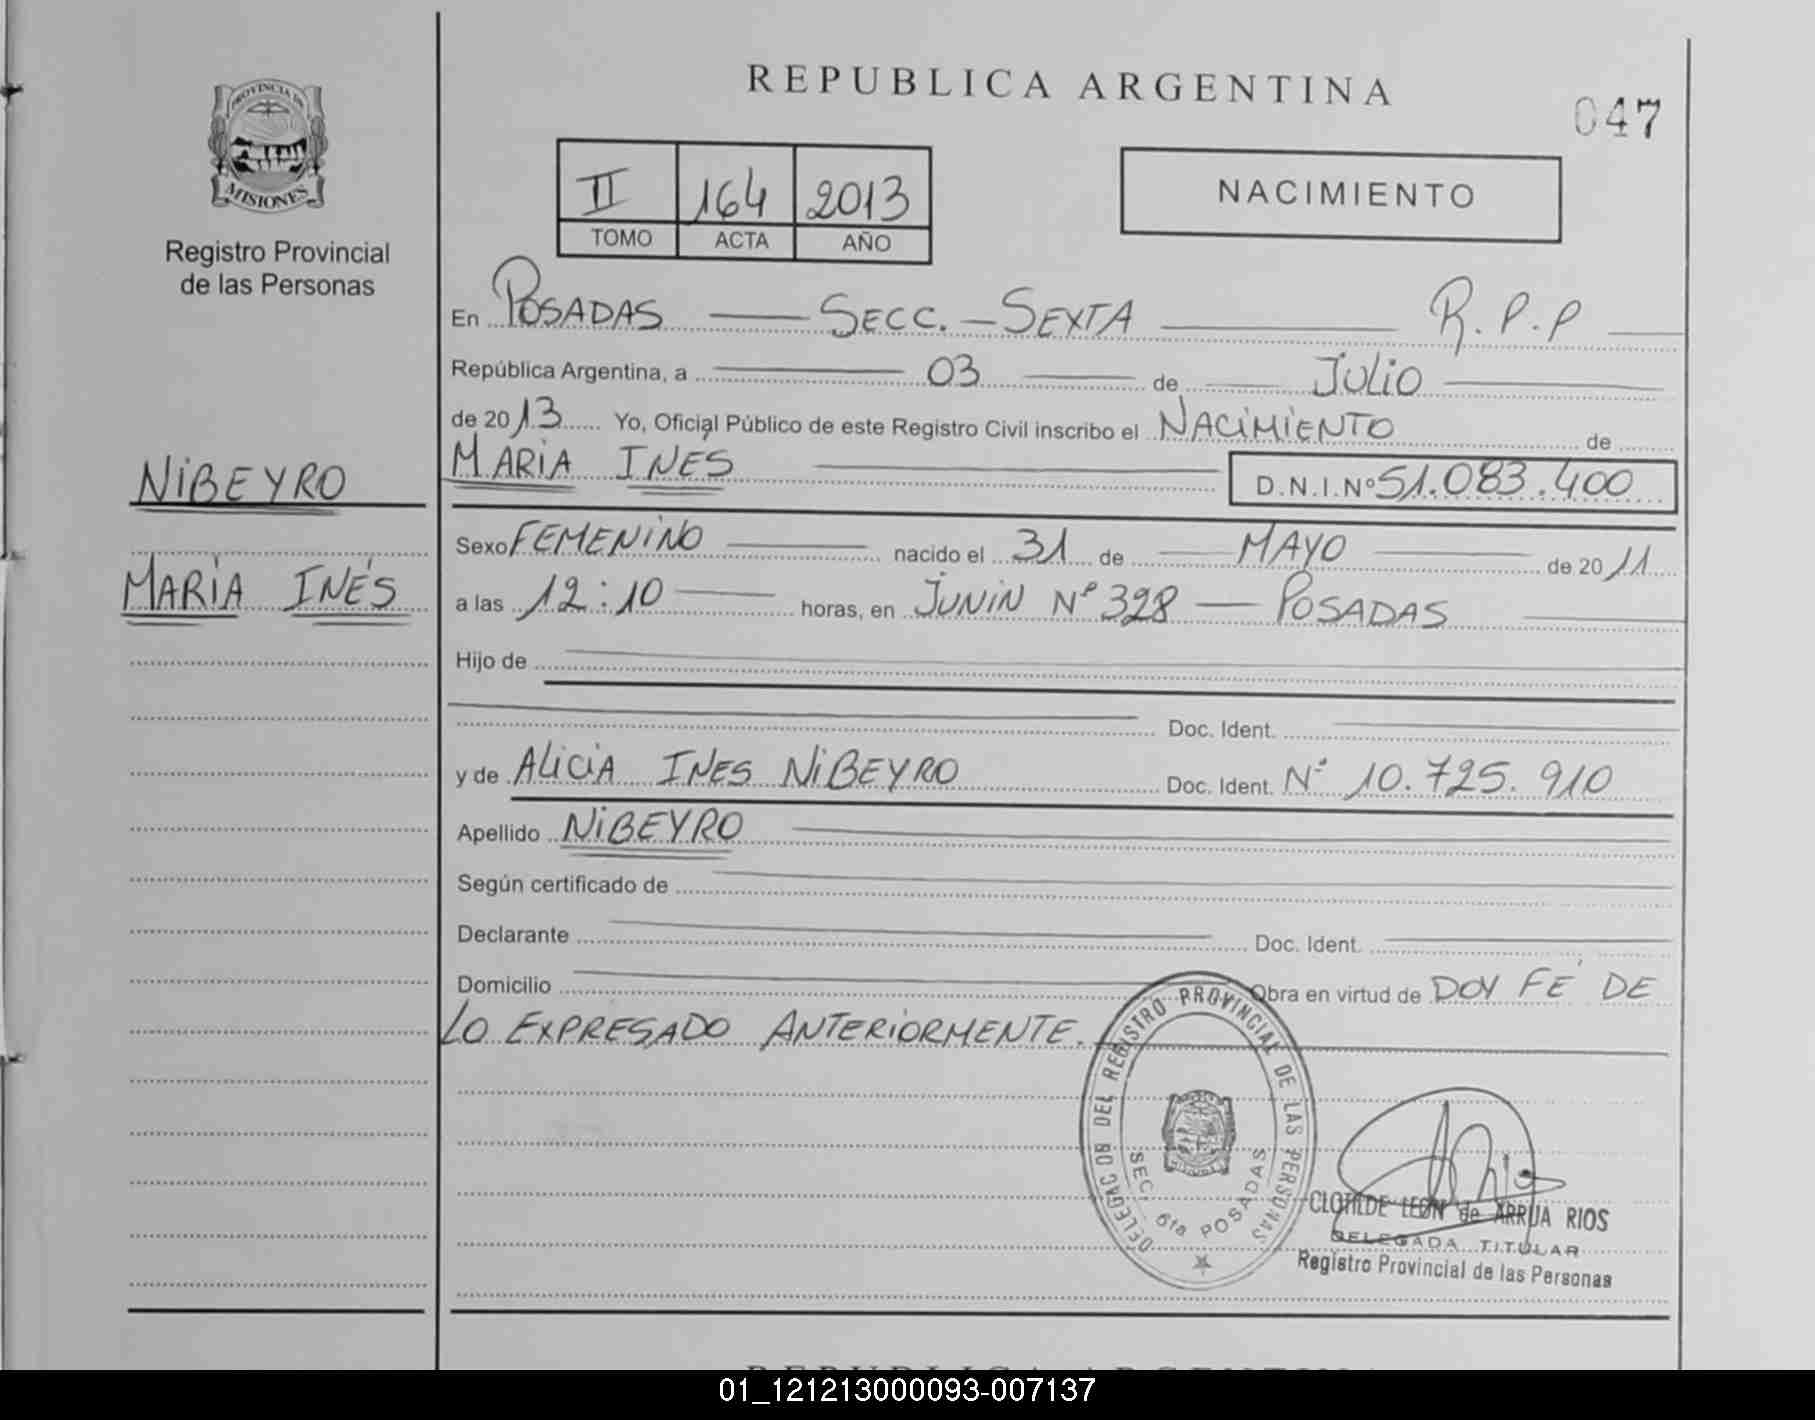 PROVINCIA DE
MISIONES
Registro Provincial
de las Personas
NIBEYRO
MARIA INÉS
REPUBLICA ARGENTINA
047
II 164 2013
TOMO ACTA AÑO
NACIMIENTO
En POSADAS — SECC. — SEXTA — R.P.P —
República Argentina, a — 03 — de — JULIO —
de 2013 Yo, Oficial Público de este Registro Civil inscribo el NACIMIENTO de
MARIA INES — D.N.I.Nº 51.083.400
Sexo FEMENINO — nacido el 31 de — MAYO — de 2011
a las 12:10 — horas, en JUNIN Nº 328 — POSADAS —
Hijo de —
— Doc. Ident. —
y de ALICIA INES NIBEYRO Doc. Ident. Nº 10.725.910
Apellido NIBEYRO —
Según certificado de —
Declarante — Doc. Ident. —
Domicilio — Obra en virtud de DOY FÉ DE
LO EXPRESADO ANTERIORMENTE. —
DELEGAC DB DEL REGISTRO PROVINCIAL DE LAS PERSONAS
SEC. 6ta POSADAS
CLOTILDE LEON de ARRUA RIOS
DELEGADA TITULAR
Registro Provincial de las Personas
01_121213000093-007137